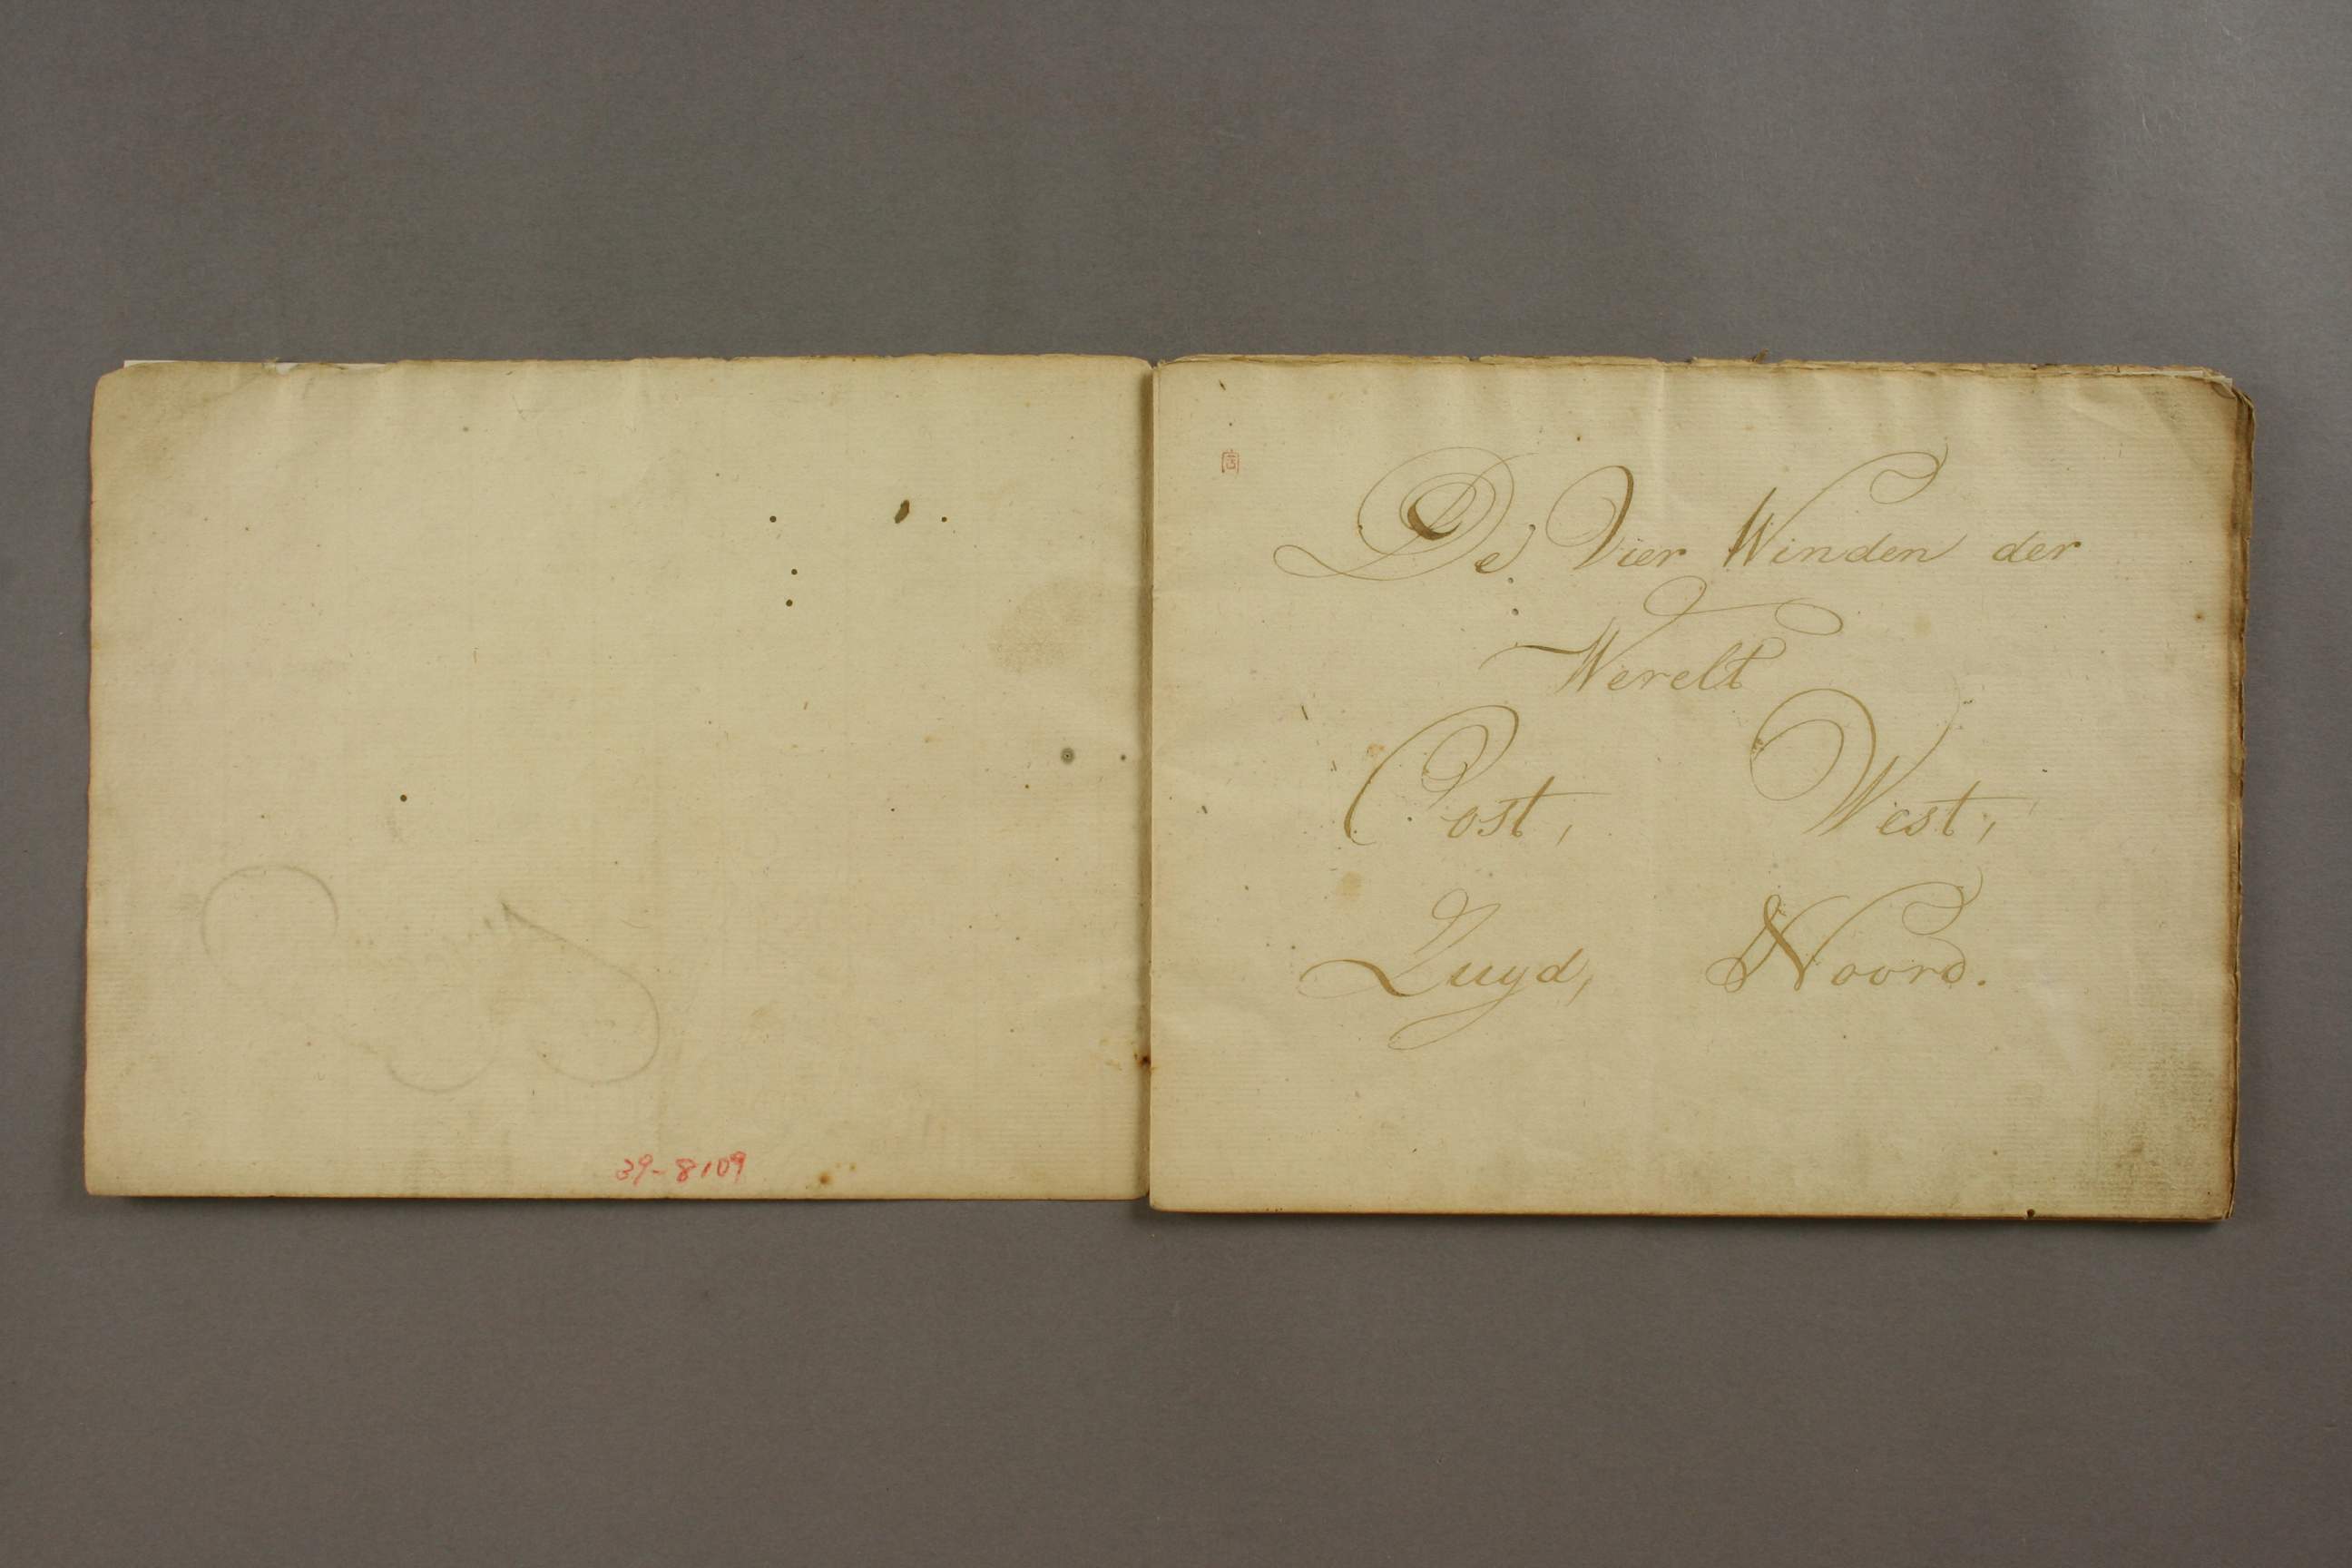 39-8109
De Vier Winden der
Werelt
Oost, West,
Zuyd, Noord.